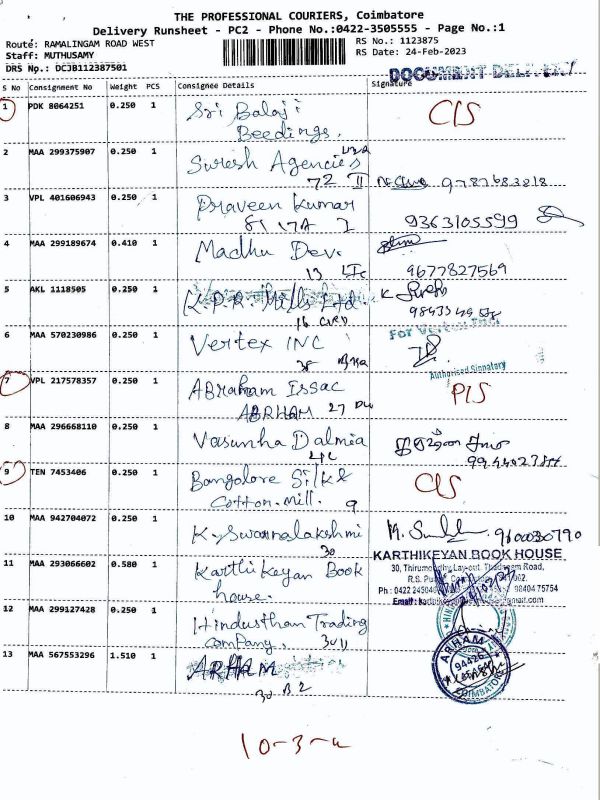 THE PROFESSIONAL COURIERS, Coimbatore
Delivery Runsheet - PC2 - Phone No.:0422-3505555 - Page No.:1
Route: RAMALINGAM ROAD WEST
RS No.: 1123875
Staff: MUTHUSAMY
RS Date: 24-Feb-2023
DRS No.: DCJB112387501
DOCUMENT DELIVERY
S No Consignment No Weight PCS Consignee Details Signature
1 PDK 8064251 0.250 1 Sri Balaji C/S
Beedings.
2 MAA 299375907 0.250 1 Suresh Agencies
72 II 9787683818
3 VPL 401606943 0.250 1 Praveen Kumar
81 17A 9363105599
4 MAA 299189674 0.410 1 Madhu Dev.
13 9677827569
5 AKL 1118505 0.250 1 K.P.R. Mills Ltd. K
16
6 MAA 570230986 0.250 1 Vertex INC For
38
Authorised Signatory
7 VPL 217578357 0.250 1 ABraham Issac P/S
ABRHAM 27
8 MAA 296668110 0.250 1 Vasunha Dalmia
9 TEN 7453406 0.250 1 Bangalore Silk & C/S
Cotton. Mill. 9
10 MAA 942704072 0.250 1 K. Swarnalakshmi M. 9600030790
30
KARTHIKEYAN BOOK HOUSE
11 MAA 293066602 0.580 1 Karthikeyan Book
house.
30, Thirumoorthy Layout, Thadagam Road,
R.S. Puram, Coimbatore
Ph : 0422 98404 75754
Email :
12 MAA 299127428 0.250 1 Hindusthan Trading
company. 30 11
13 MAA 567553296 1.510 1 ARHAM
30 B2
ARHAM
94426
COIMBATORE
10-3-4